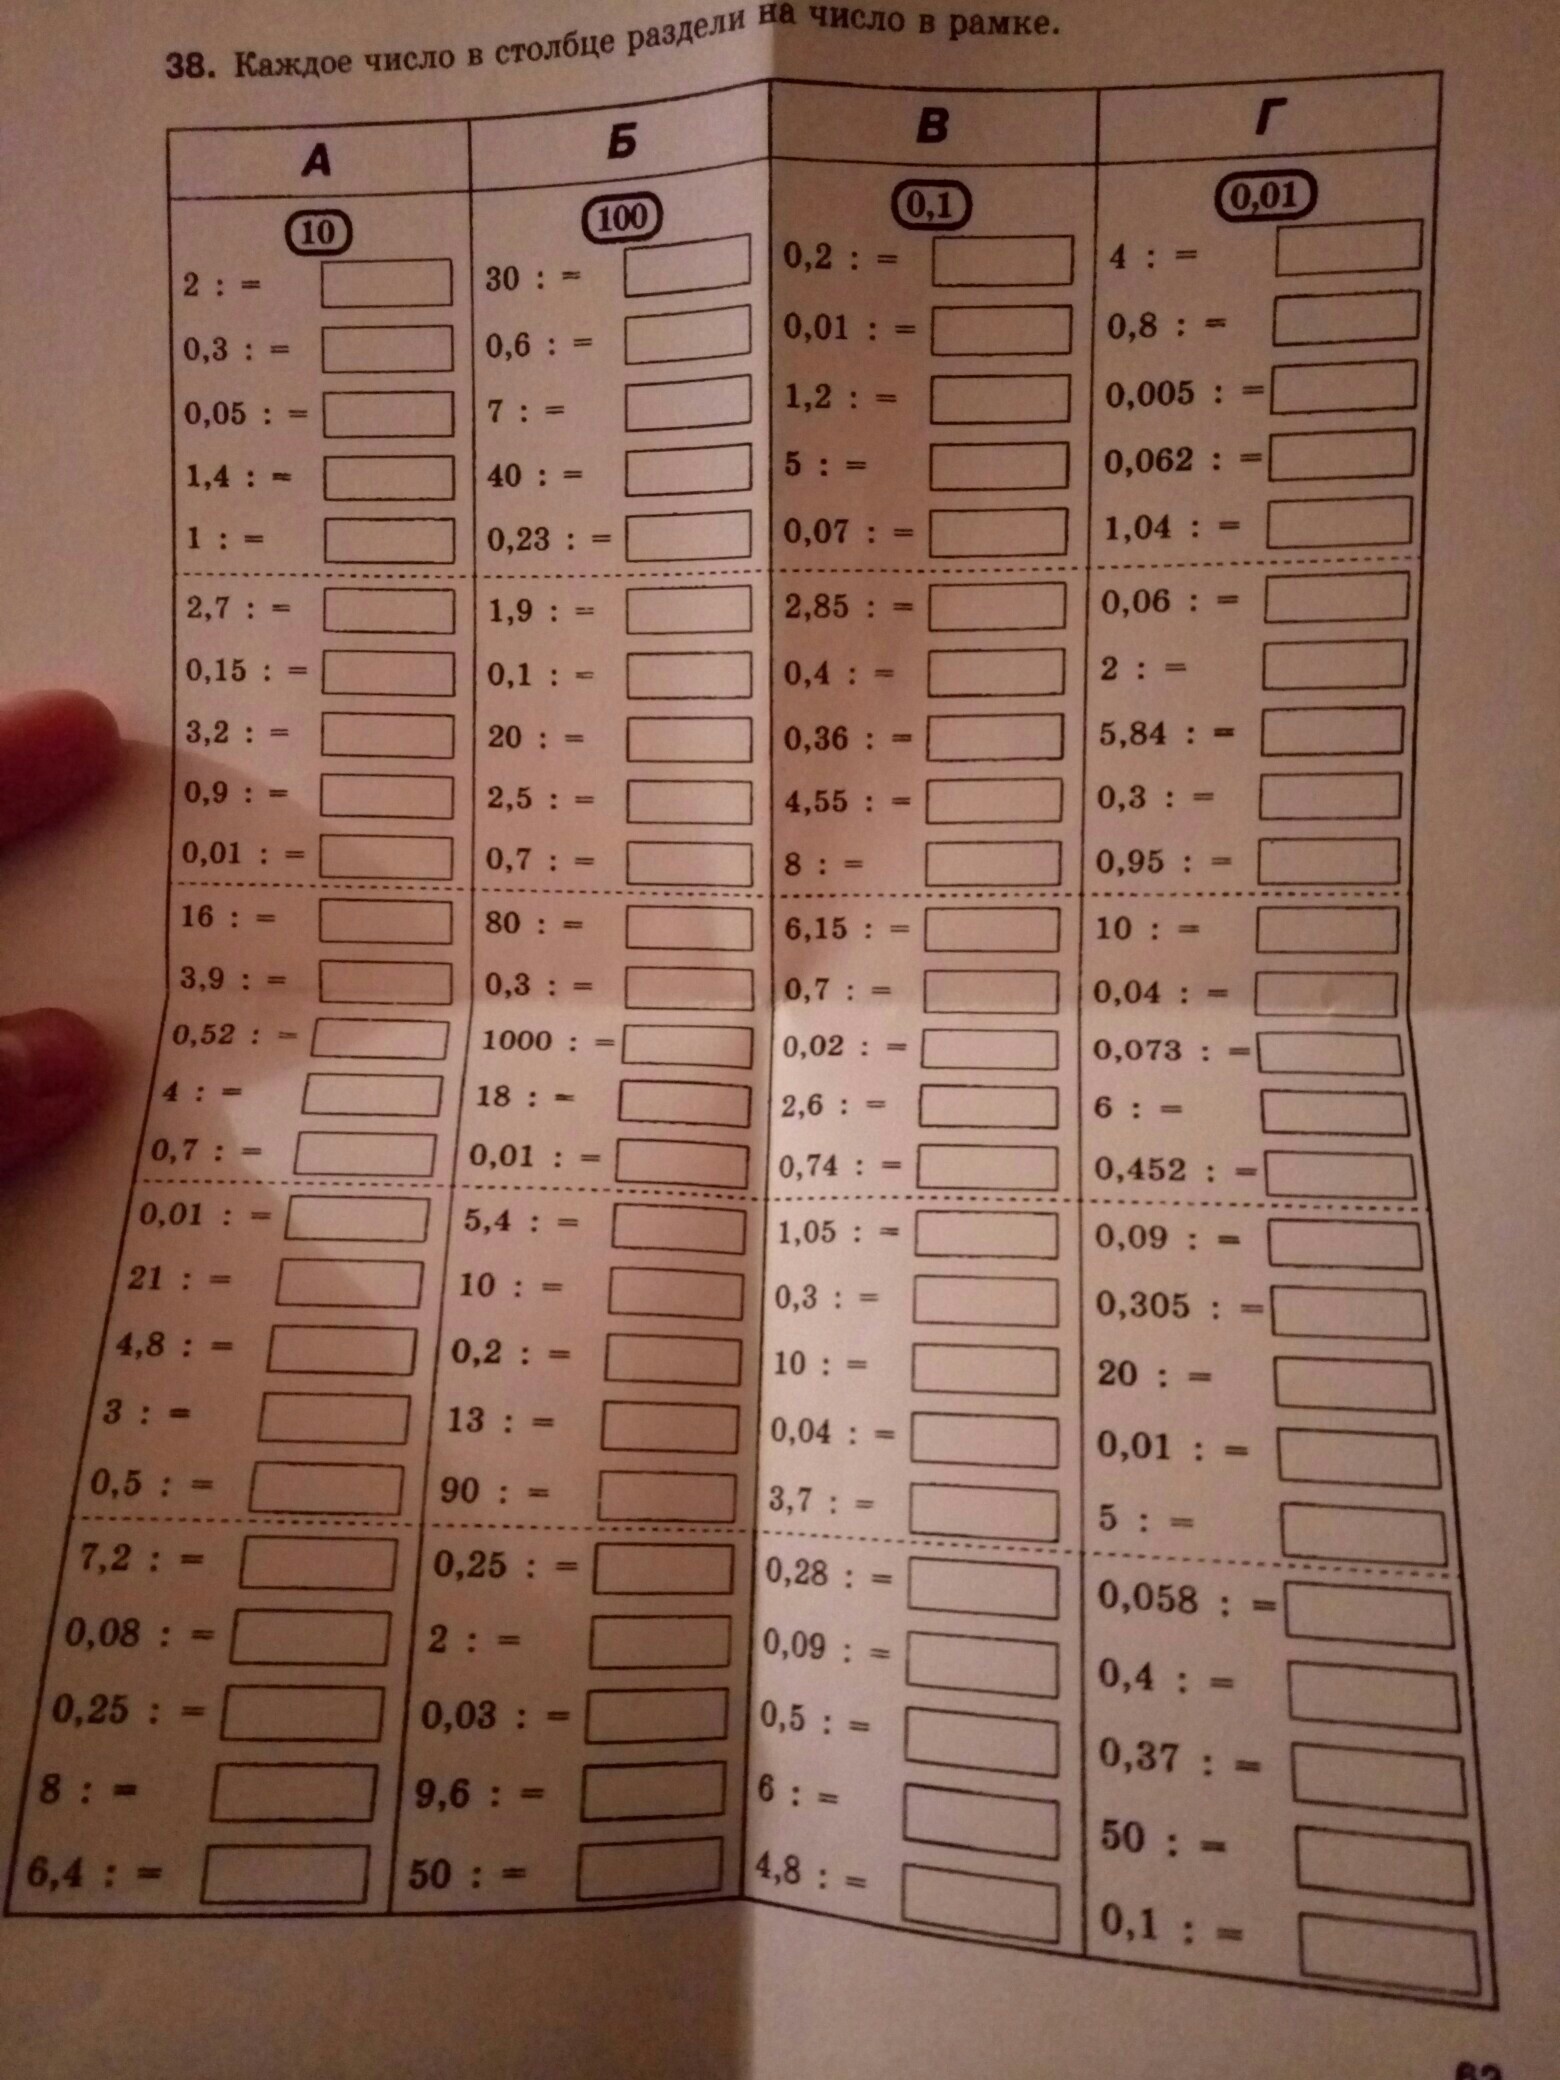 38. Каждое число в столбце раздели на число в рамке.
А Б В Г
10 100 0,1 0,01
2 : = 30 : = 0,2 : = 4 : =
0,3 : = 0,6 : = 0,01 : = 0,8 : =
0,05 : = 7 : = 1,2 : = 0,005 : =
1,4 : = 40 : = 5 : = 0,062 : =
1 : = 0,23 : = 0,07 : = 1,04 : =
2,7 : = 1,9 : = 2,85 : = 0,06 : =
0,15 : = 0,1 : = 0,4 : = 2 : =
3,2 : = 20 : = 0,36 : = 5,84 : =
0,9 : = 2,5 : = 4,55 : = 0,3 : =
0,01 : = 0,7 : = 8 : = 0,95 : =
16 : = 80 : = 6,15 : = 10 : =
3,9 : = 0,3 : = 0,7 : = 0,04 : =
0,52 : = 1000 : = 0,02 : = 0,073 : =
4 : = 18 : = 2,6 : = 6 : =
0,7 : = 0,01 : = 0,74 : = 0,452 : =
0,01 : = 5,4 : = 1,05 : = 0,09 : =
21 : = 10 : = 0,3 : = 0,305 : =
4,8 : = 0,2 : = 10 : = 20 : =
3 : = 13 : = 0,04 : = 0,01 : =
0,5 : = 90 : = 3,7 : = 5 : =
7,2 : = 0,25 : = 0,28 : = 0,058 : =
0,08 : = 2 : = 0,09 : = 0,4 : =
0,25 : = 0,03 : = 0,5 : = 0,37 : =
8 : = 9,6 : = 6 : = 50 : =
6,4 : = 50 : = 4,8 : = 0,1 : =